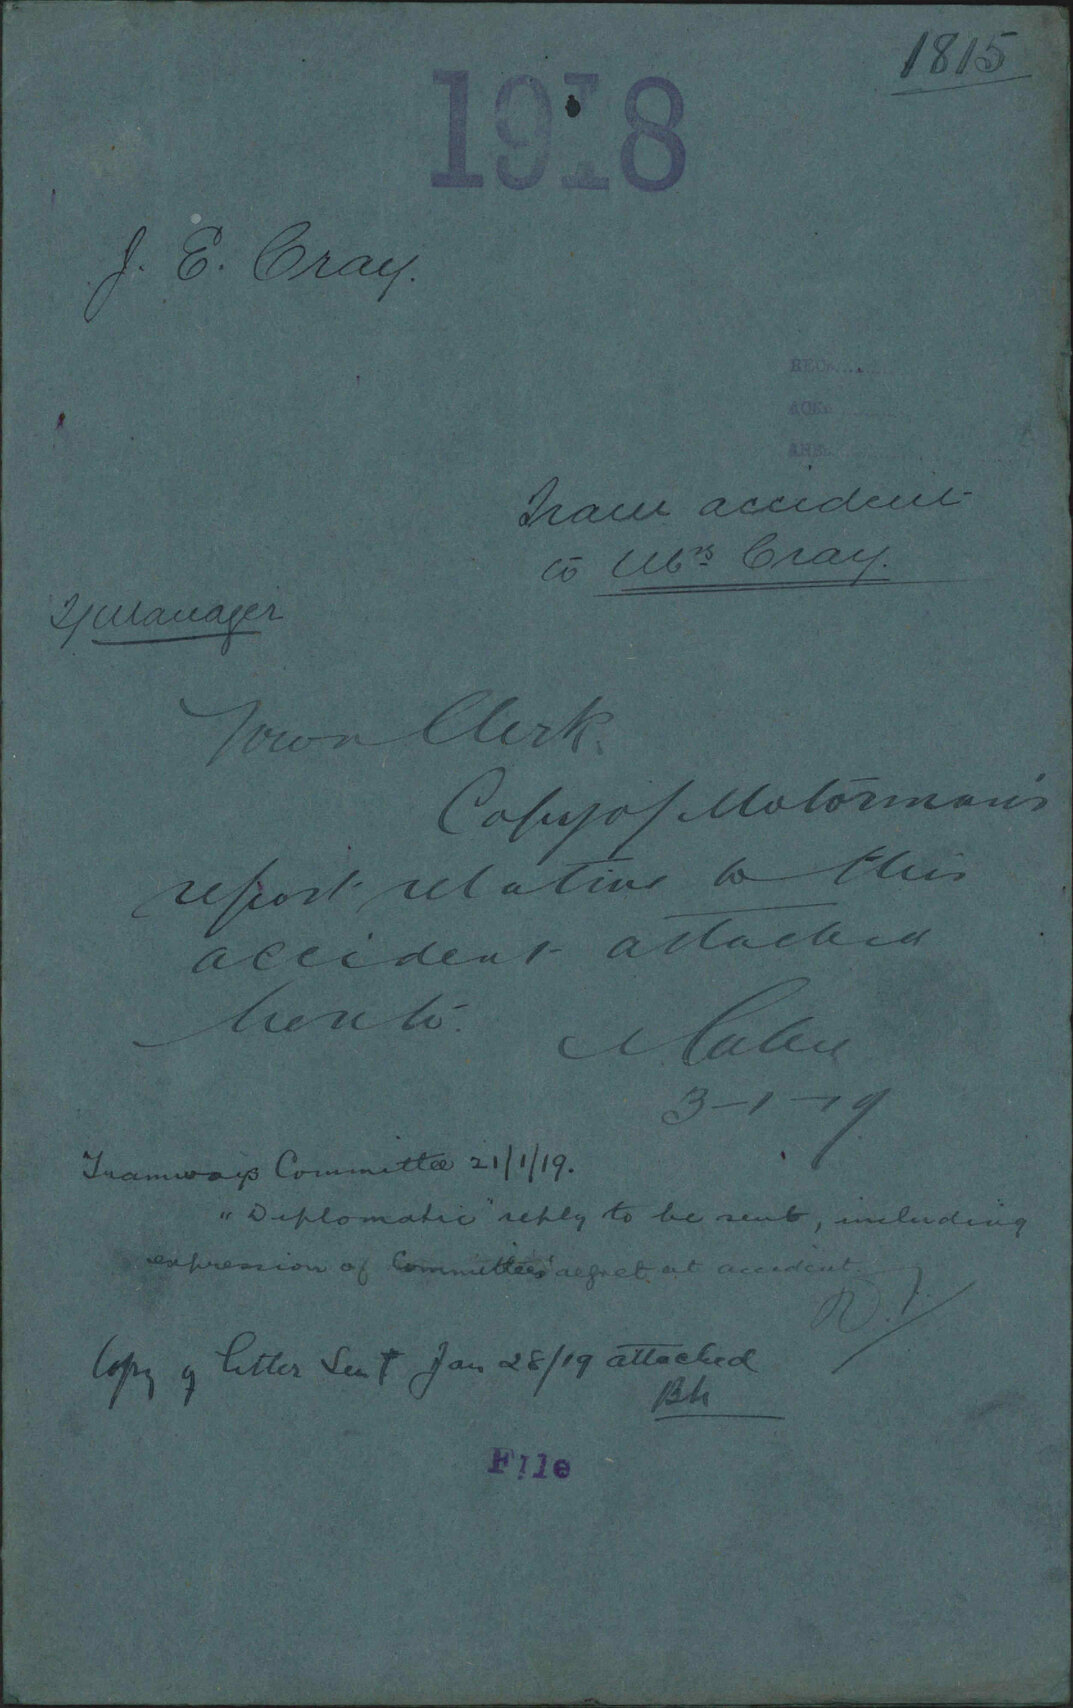 1815
1918
J. E. Cray.
REC
ACK
ANS
Tram accident
to Mrs Cray.
T/Manager
Town Clerk.
Copy of Motorman's
report relative to this
accident attached
hereto.
3-1-19
Tramways Committee 21/1/19.
"Diplomatic" reply to be sent, including
expression of Committee's regret at accident.
Copy of letter sent Jan 28/19 attached
File